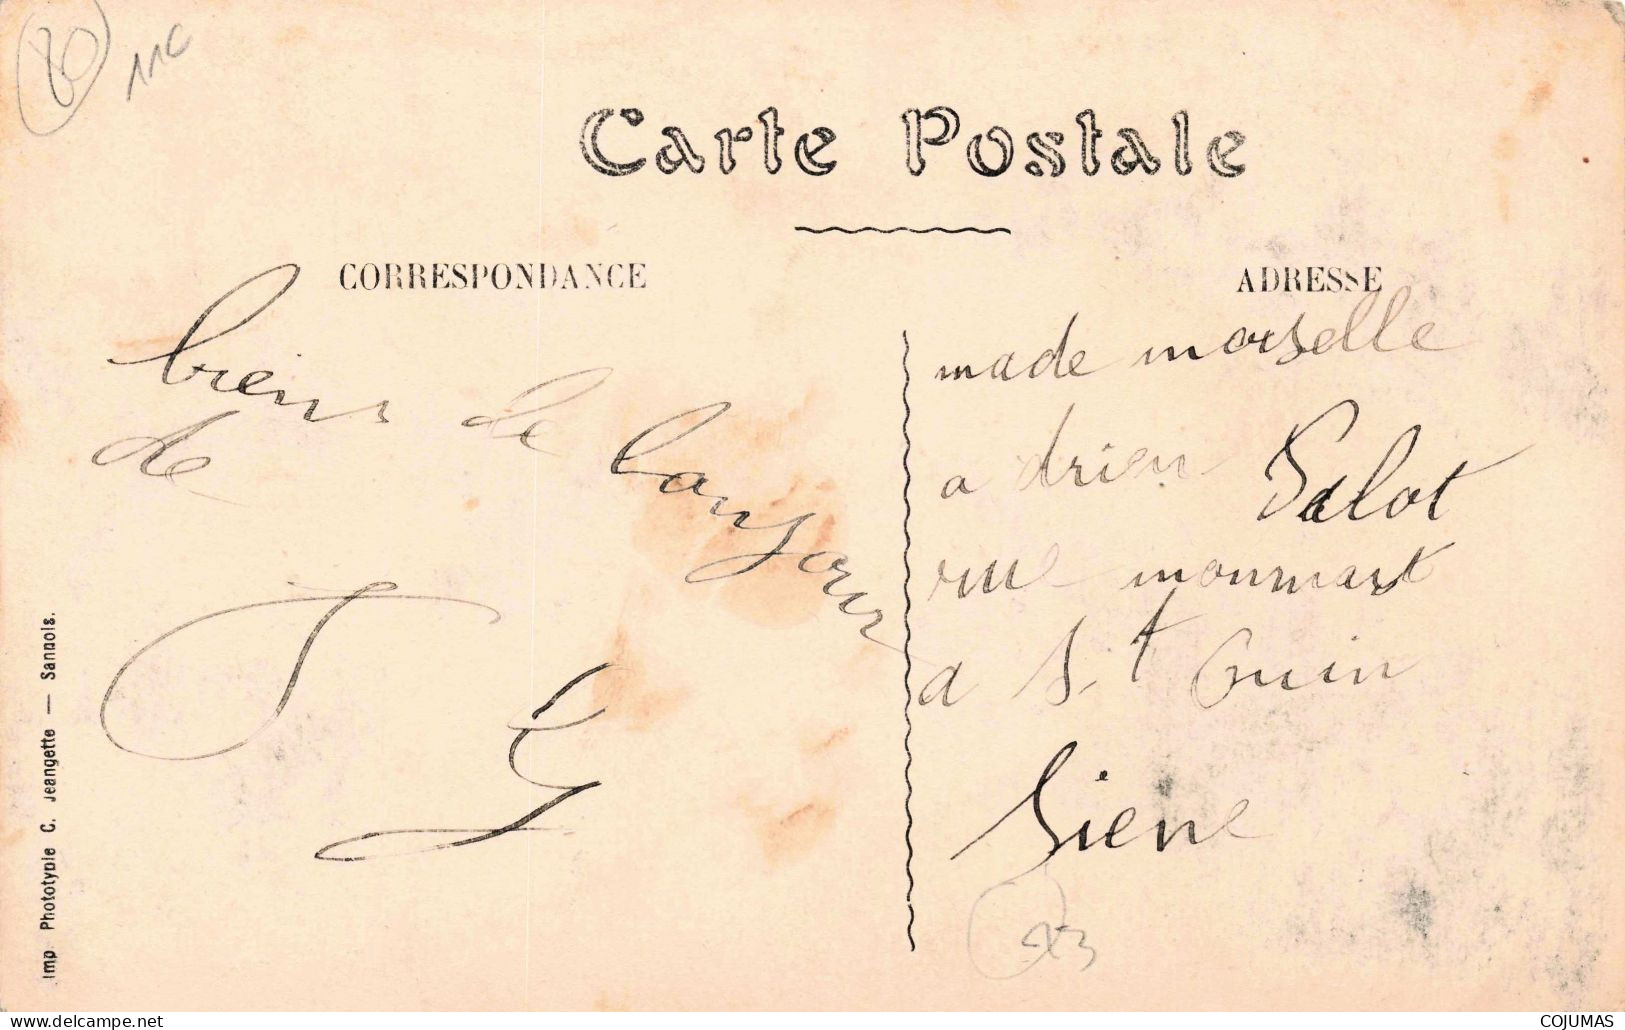 80
Carte Postale
CORRESPONDANCE
biens de bonjour
de
J
G
ADRESSE
made moiselle
a drien Palot
rue monmart
a St Ouin
Siene
Imp. Phototypie C. Jeangette — Sannois.
www.delcampe.net
COJUMAS